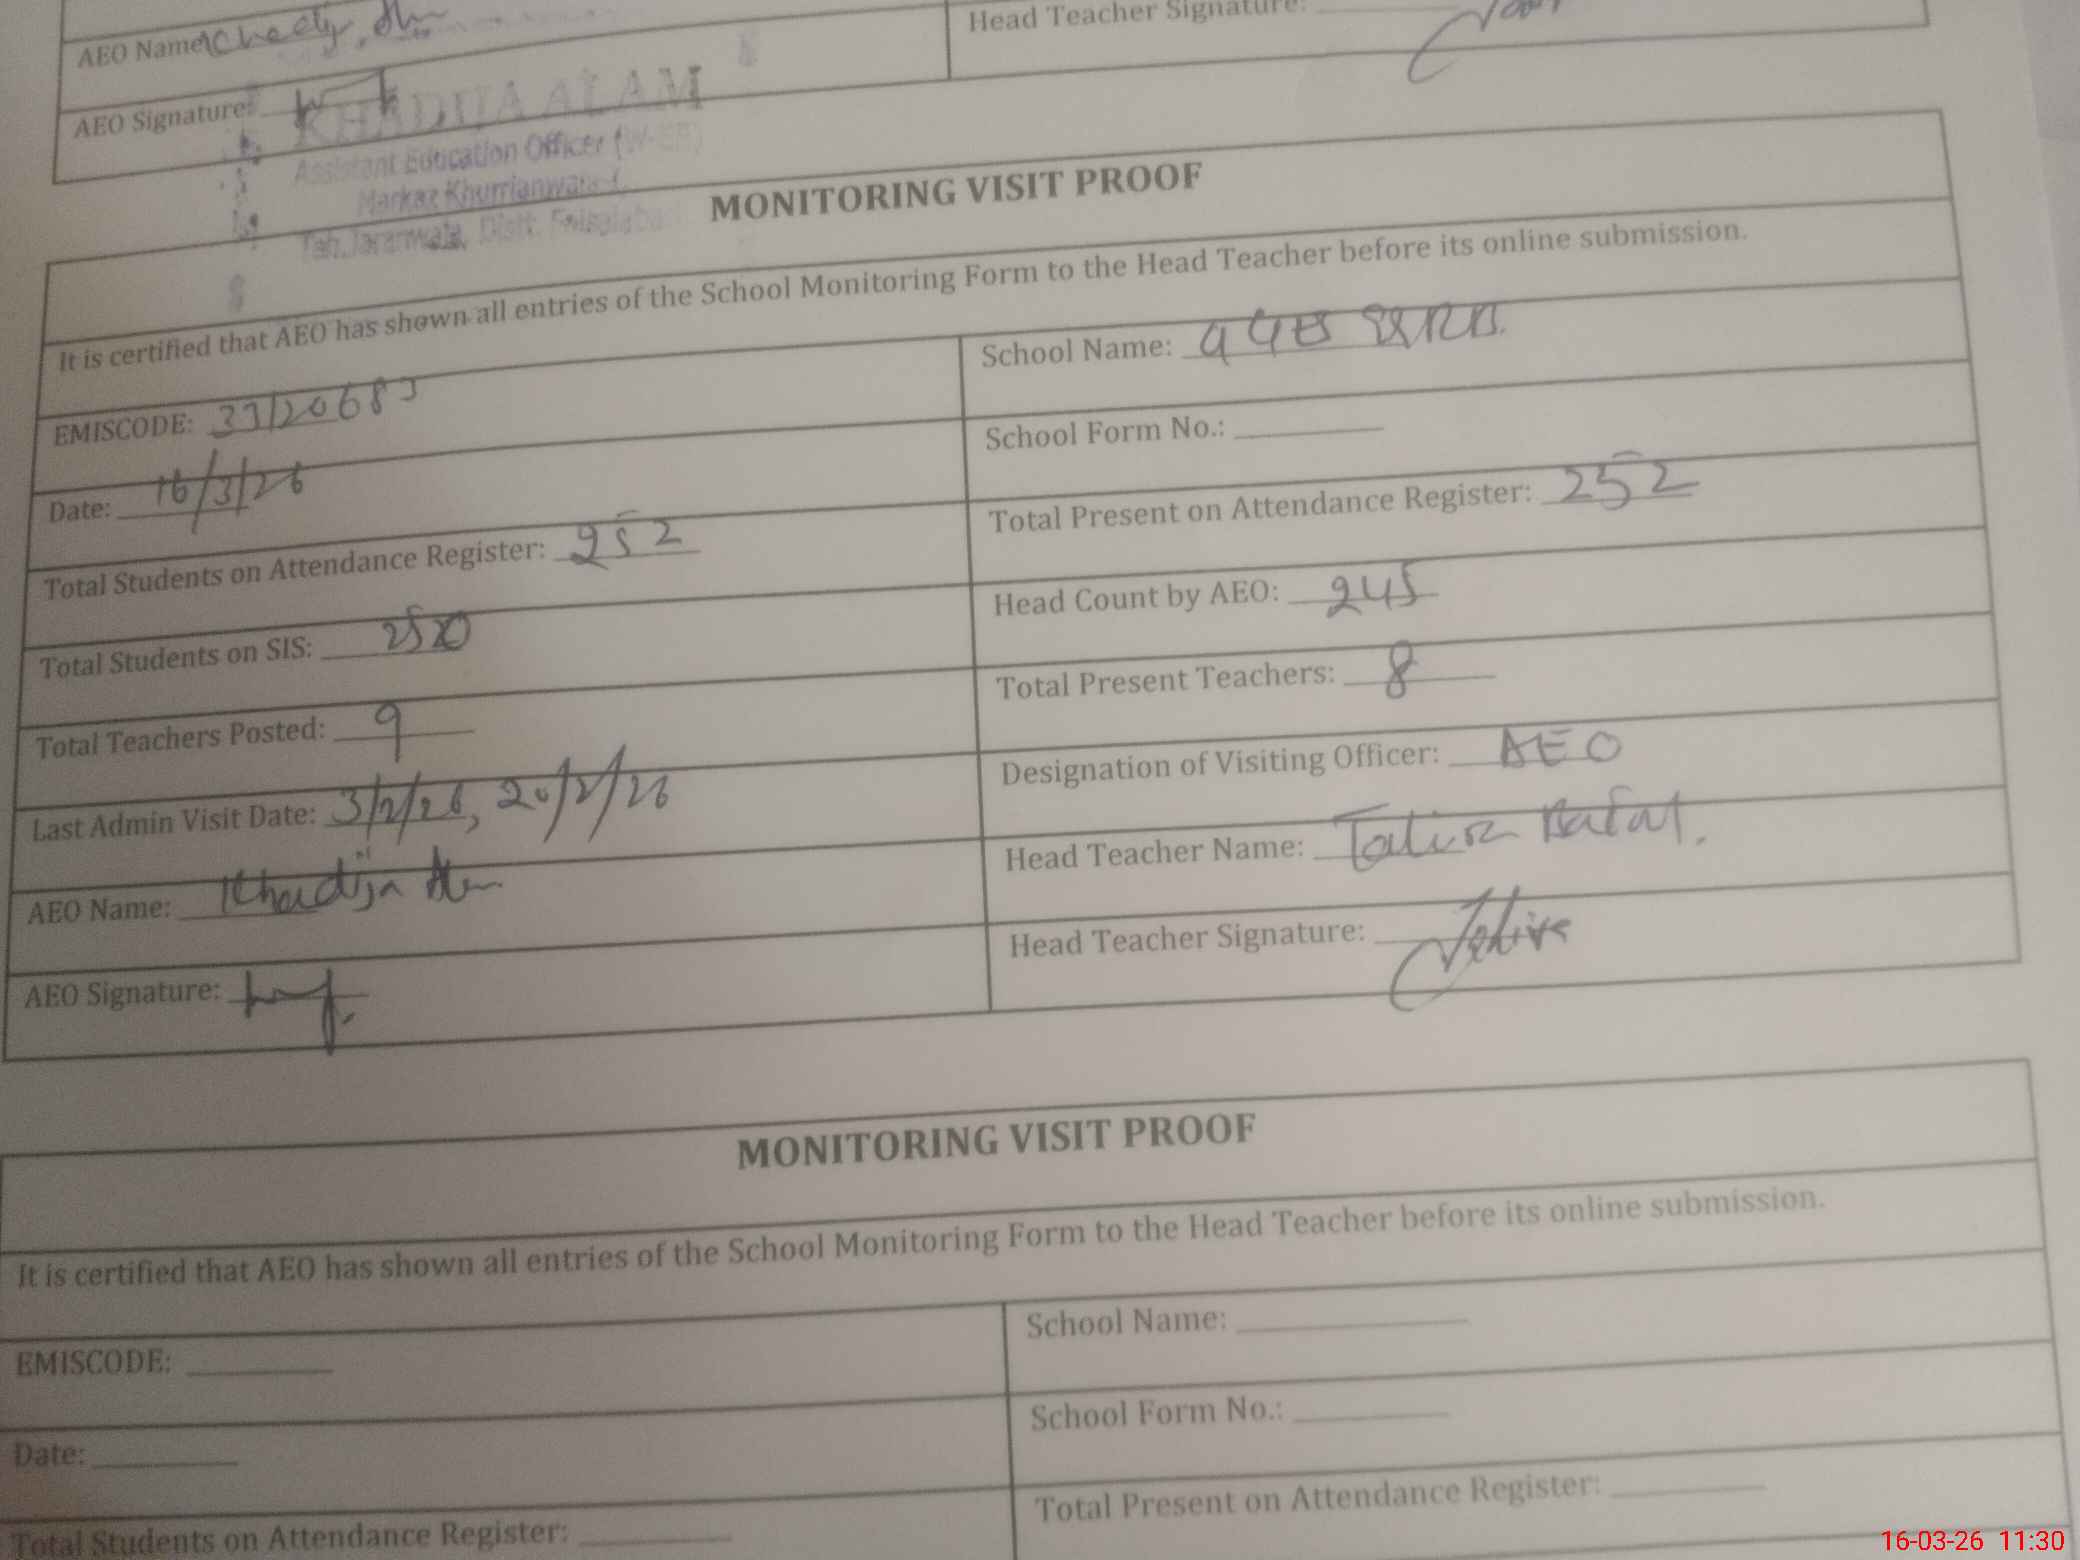 AEO Name:
Head Teacher Signature:
AEO Signature:
KHADIJA ALAM
Assistant Education Officer (W-EE)
Markaz Khurrianwala
Teh. Jaranwala, Distt. Faisalabad
MONITORING VISIT PROOF
It is certified that AEO has shown all entries of the School Monitoring Form to the Head Teacher before its online submission.
EMISCODE: 33120683
School Name:
Date: 16/3/26
School Form No.:
Total Students on Attendance Register: 252
Total Present on Attendance Register: 252
Total Students on SIS:
Head Count by AEO: 245
Total Teachers Posted: 9
Total Present Teachers: 8
Last Admin Visit Date: 3/2/26, 20/2/26
Designation of Visiting Officer: AEO
AEO Name: Khadija
Head Teacher Name:
AEO Signature:
Head Teacher Signature:
MONITORING VISIT PROOF
It is certified that AEO has shown all entries of the School Monitoring Form to the Head Teacher before its online submission.
EMISCODE:
School Name:
Date:
School Form No.:
Total Students on Attendance Register:
Total Present on Attendance Register:
16-03-26 11:30